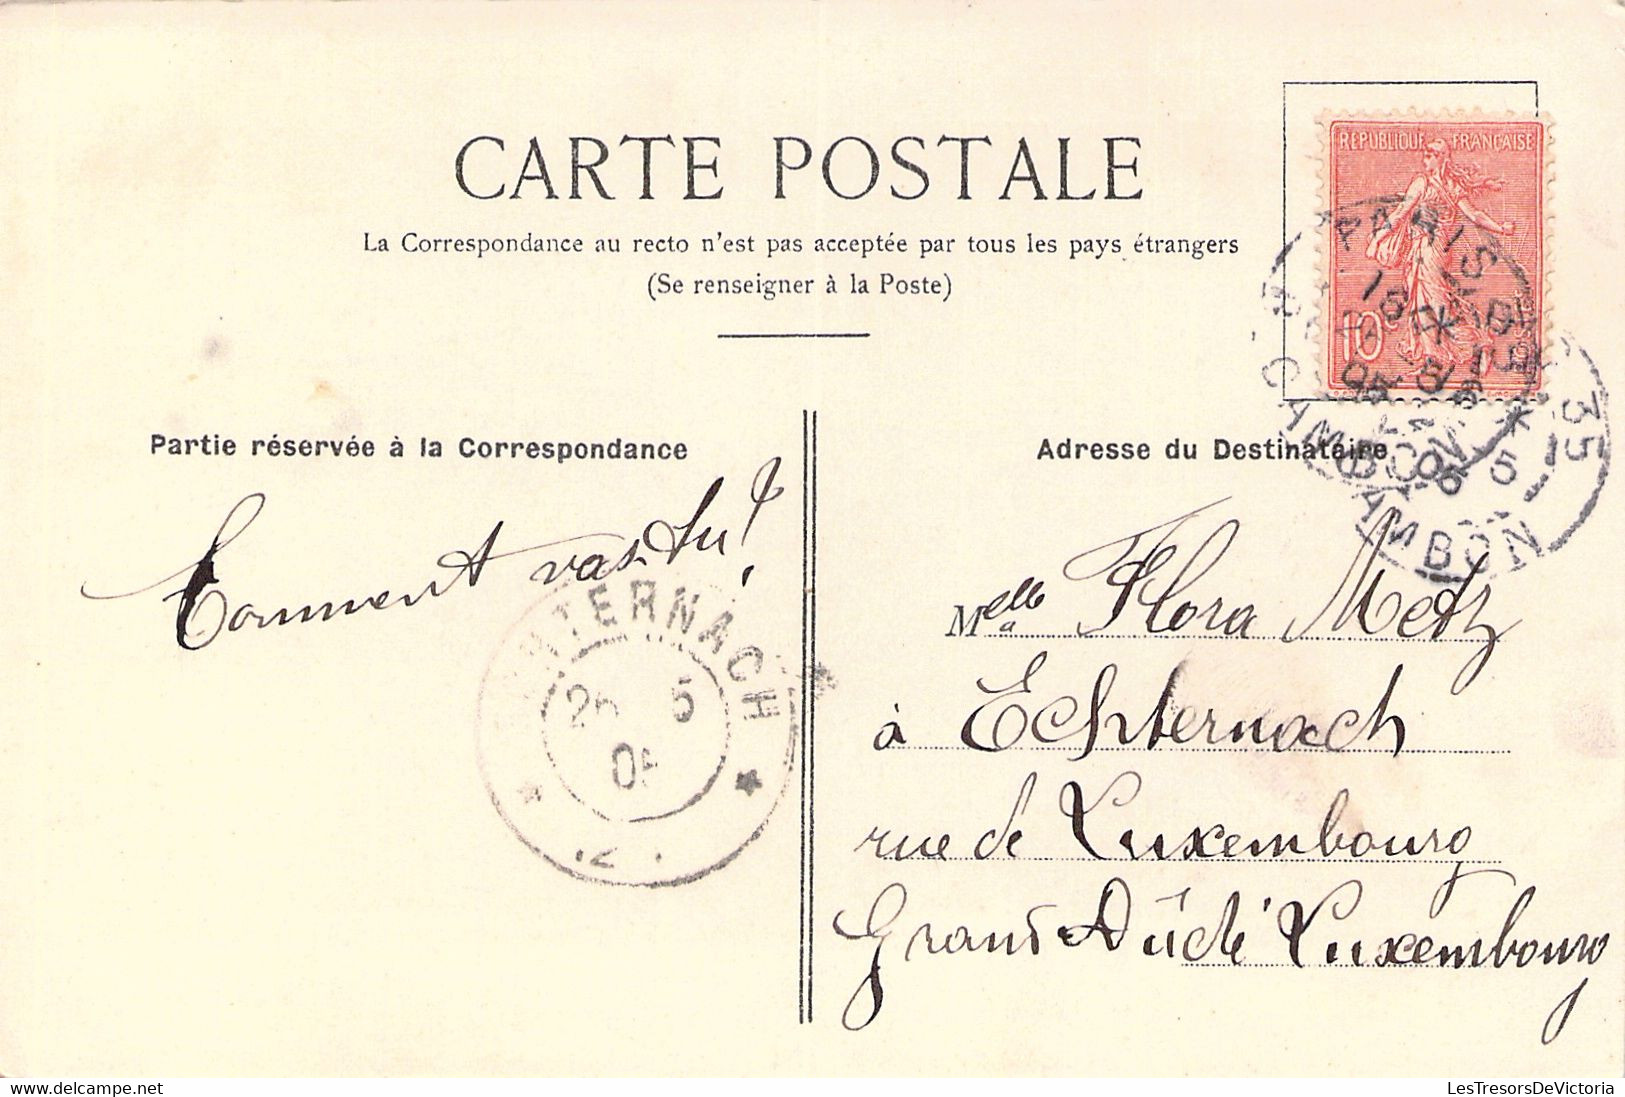 CARTE POSTALE
La Correspondance au recto n'est pas acceptée par tous les pays étrangers
(Se renseigner à la Poste)
REPUBLIQUE FRANÇAISE
10c
PARIS
CAMBON
AMBON
35
Partie réservée à la Correspondance
Adresse du Destinataire
Comment vas-tu?
TERNACH
5
Melle Flora Metz
à Echternach
rue de Luxembourg
Grand Duché Luxembourg
delcampe.net
LesTresorsDeVictoria